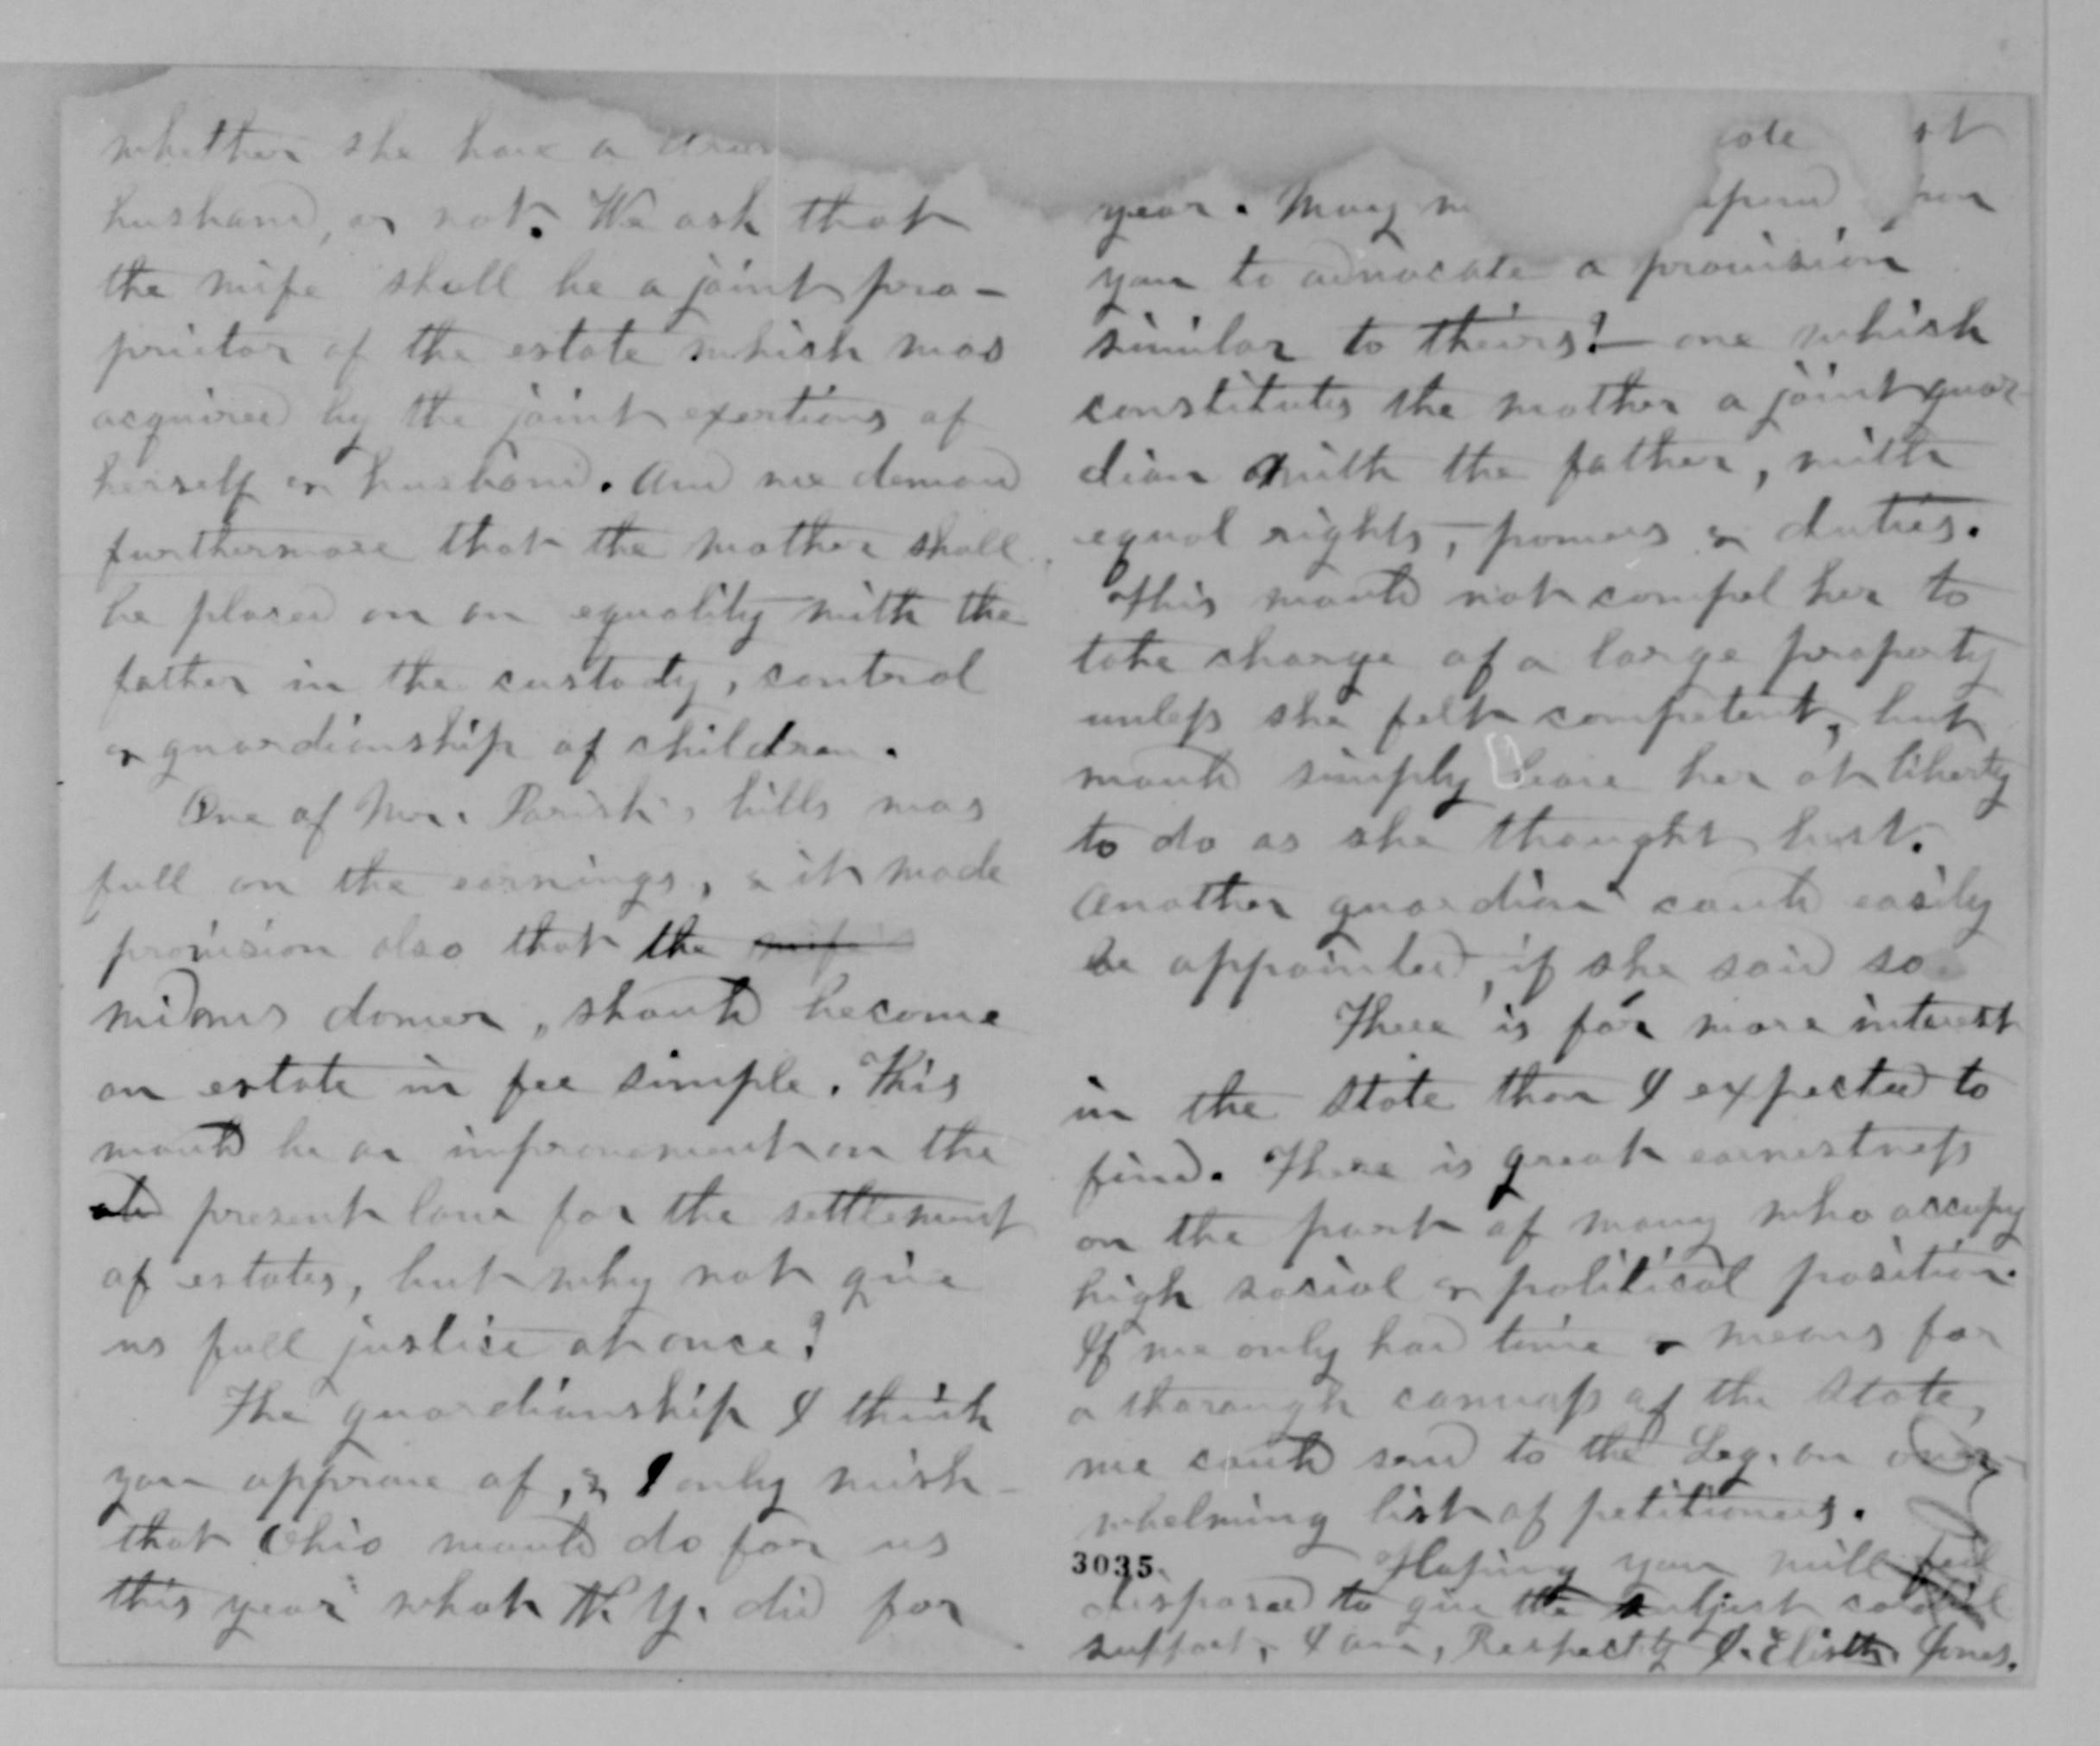 whether she have a
husband, or not. We ask that
the wife shall be a joint pro-
prietor of the estate which was
acquired by the joint exertions of
herself & husband. And we demand
furthermore that the mother shall
be placed on an equality with the
father in the custody, control
& guardianship of children.
One of Mr. Parish's bills was
full on the earnings, & it made
provision also that the wife's
widows dower, should become
an estate in fee simple. This
would be an improvement on the
old present law for the settlement
of estates, but why not give
us full justice at once?
The guardianship I think
you approve of, & I only wish
that Ohio would do for us
this year what N. Y. did for
st
year. May we
you to advocate a provision
similar to theirs? — one which
constitutes the mother a joint guar-
dian with the father, with
equal rights, powers & duties.
This would not compel her to
take charge of a large property
unless she felt competent, but
would simply leave her at liberty
to do as she thought best.
Another guardian could easily
be appointed, if she said so.
There is far more interest
in the State than I expected to
find. There is great earnestness
on the part of many who occupy
high social & political position.
If we only had time & means for
a thorough canvass of the State,
we could send to the Leg. an over-
whelming list of petitioners.
3035
Hoping you will feel
disposed to give the subject cordial
support, I am, Respectly J. Elisth. Jones.